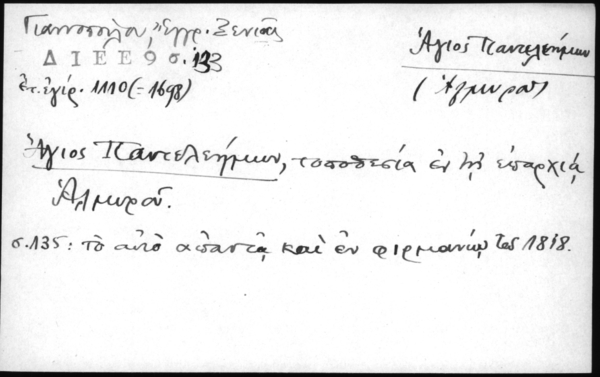 Γιαννοπούλου, Ἔγγρ. Ξενιᾶς
Δ Ι Ε Ε 9 σ. 133
ἔτ. ἐγίρ. 1110 (= 1698)
Ἅγιος Παντελεήμων
(Ἁλμυροῦ)
Ἅγιος Παντελεήμων, τοποθεσία ἐν τῇ ἐπαρχίᾳ
Ἁλμυροῦ.
σ. 135: τὸ αὐτὸ ἀπαντᾷ καὶ ἐν φιρμανίῳ τοῦ 1818.